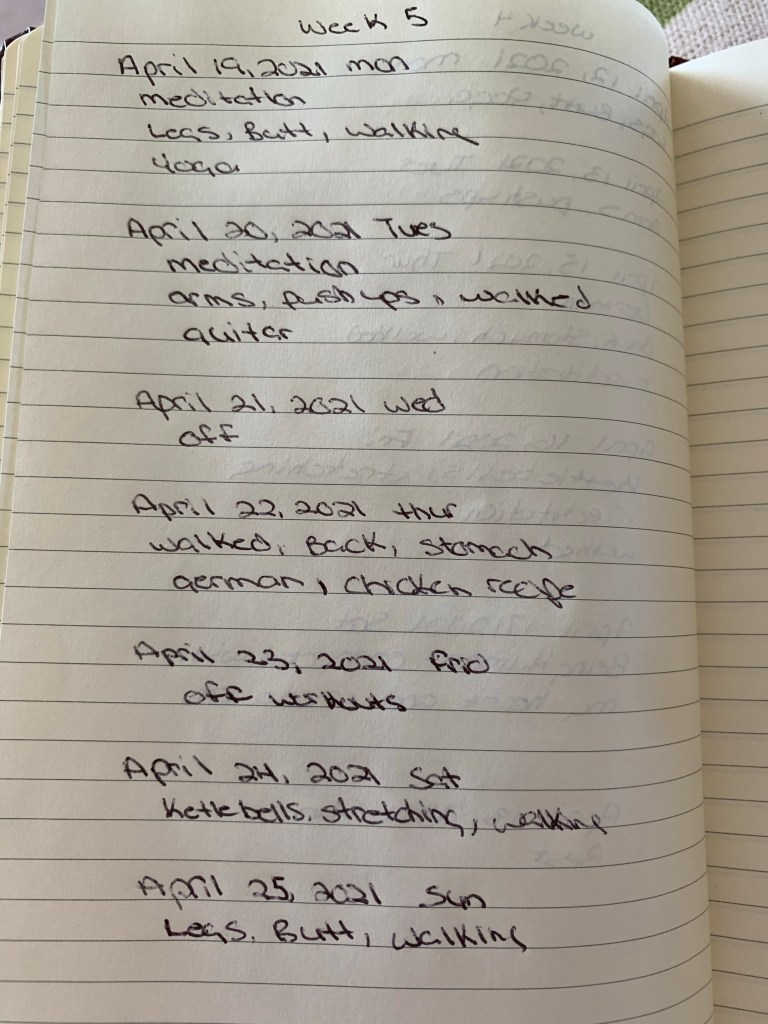 Week 5
April 19, 2021 mon
meditation
Legs, Butt, walking
yoga
April 20, 2021 Tues
meditation
arms, pushups, walked
guitar
April 21, 2021 wed
off
April 22, 2021 thur
walked, Back, stomach
german, chicken recipe
April 23, 2021 frid
off workouts
April 24, 2021 Sat
Ketlebells, stretching, walking
April 25, 2021 Sun
Legs, Butt, walking